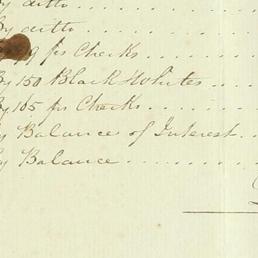 By ditto
By ditto
9 ps Checks
By 150 Black & Whites
By 165 ps Checks
By Balance of Interest
By Balance